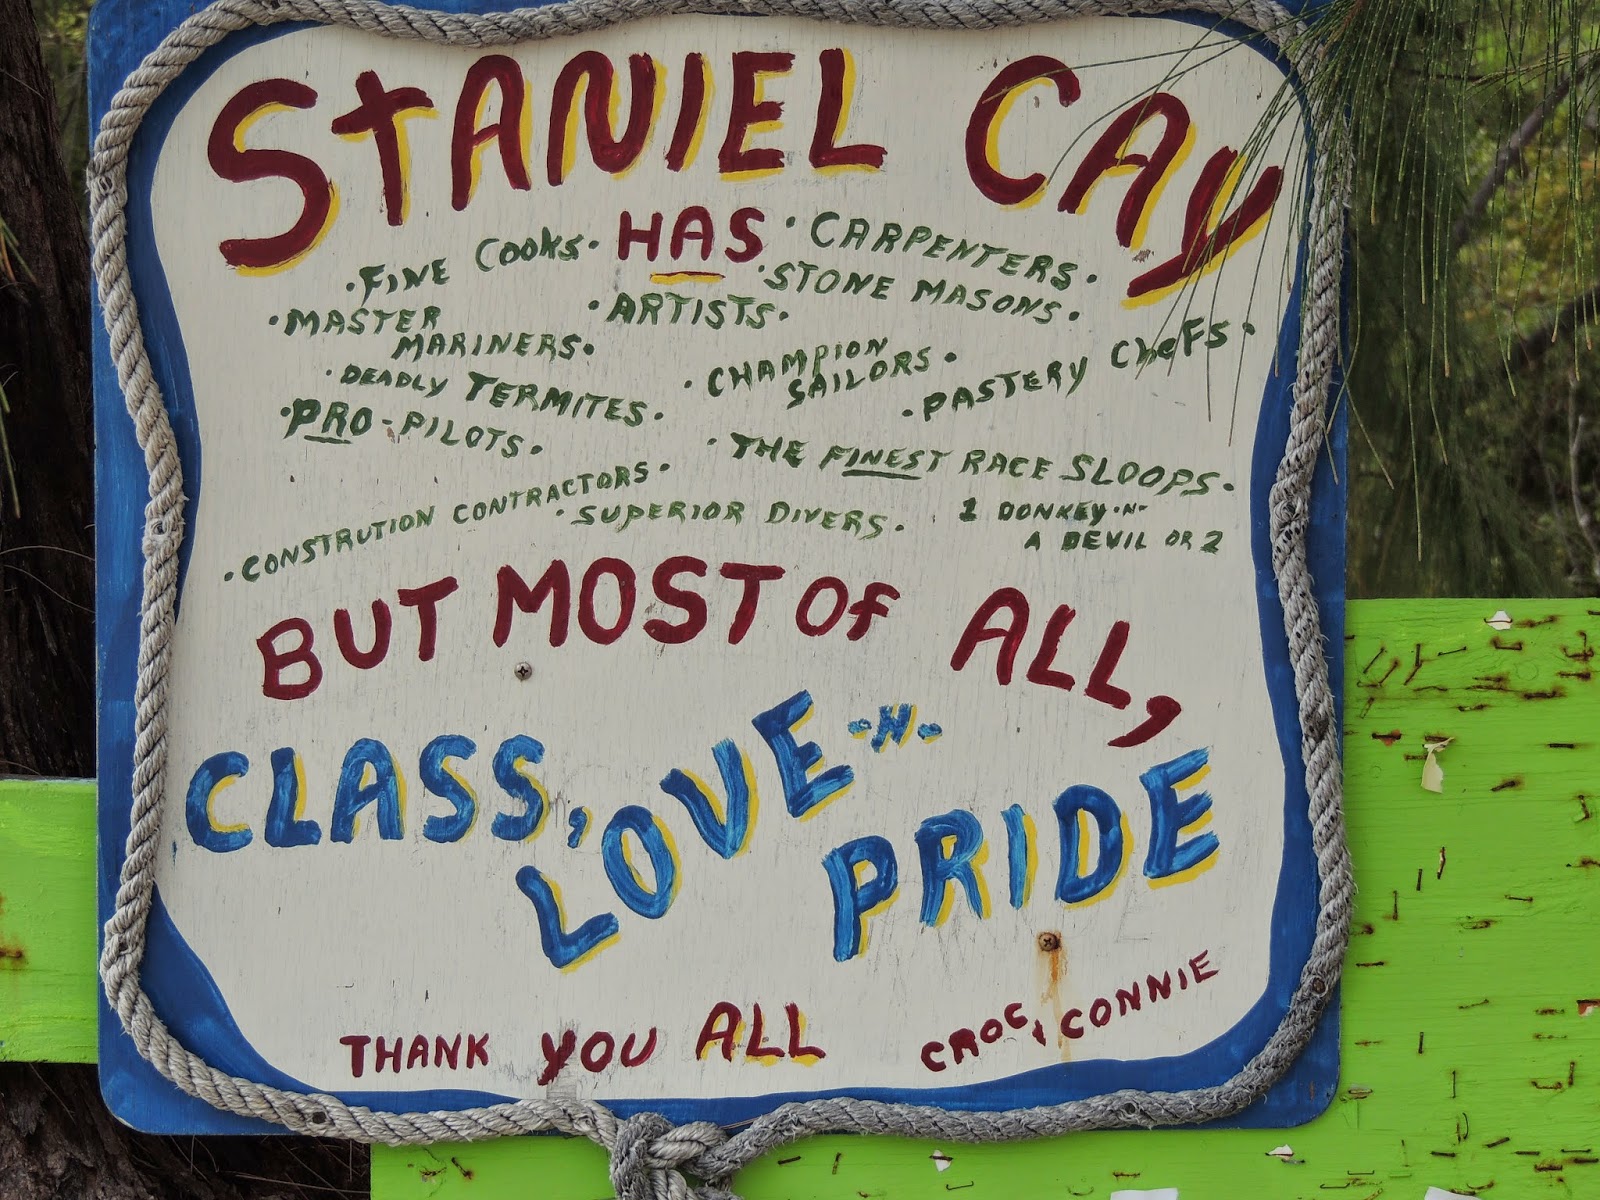 STANIEL CAY
HAS
• FINE COOKS •
• CARPENTERS •
• STONE MASONS •
• MASTER
MARINERS •
• ARTISTS •
• DEADLY TERMITES •
• CHAMPION
SAILORS •
• PASTERY CHEFS •
• PRO - PILOTS •
• THE FINEST RACE SLOOPS •
• CONSTRUTION CONTRACTORS •
• SUPERIOR DIVERS •
1 DONKEY -N-
A DEVIL OR 2
BUT MOST OF ALL,
CLASS, LOVE -N-
PRIDE
THANK YOU ALL
CROC + CONNIE